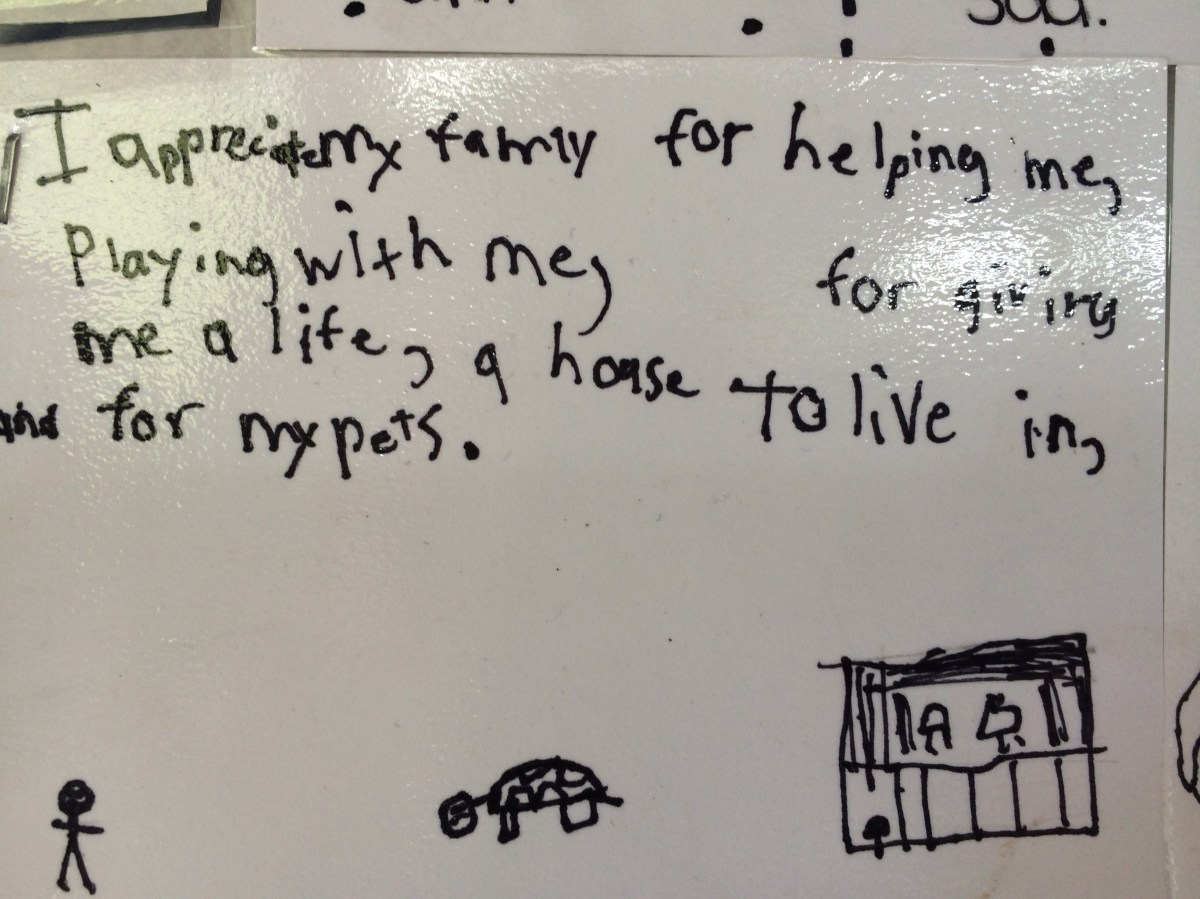 I appreciate my family for helping me,
Playing with me, for giving
me a life, a house to live in,
and for my pets.